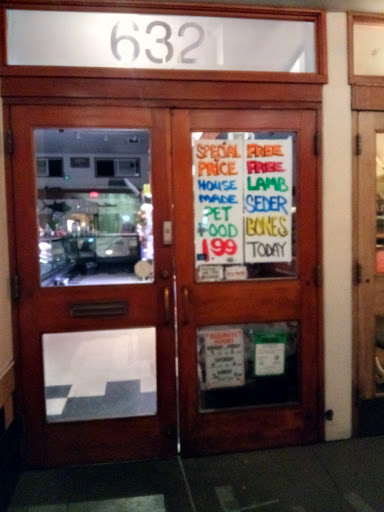 6321
SPECIAL
PRICE
HOUSE
MADE
PET
FOOD
199
FREE
FREE
LAMB
SEDER
BONES
TODAY
BUSINESS
HOURS